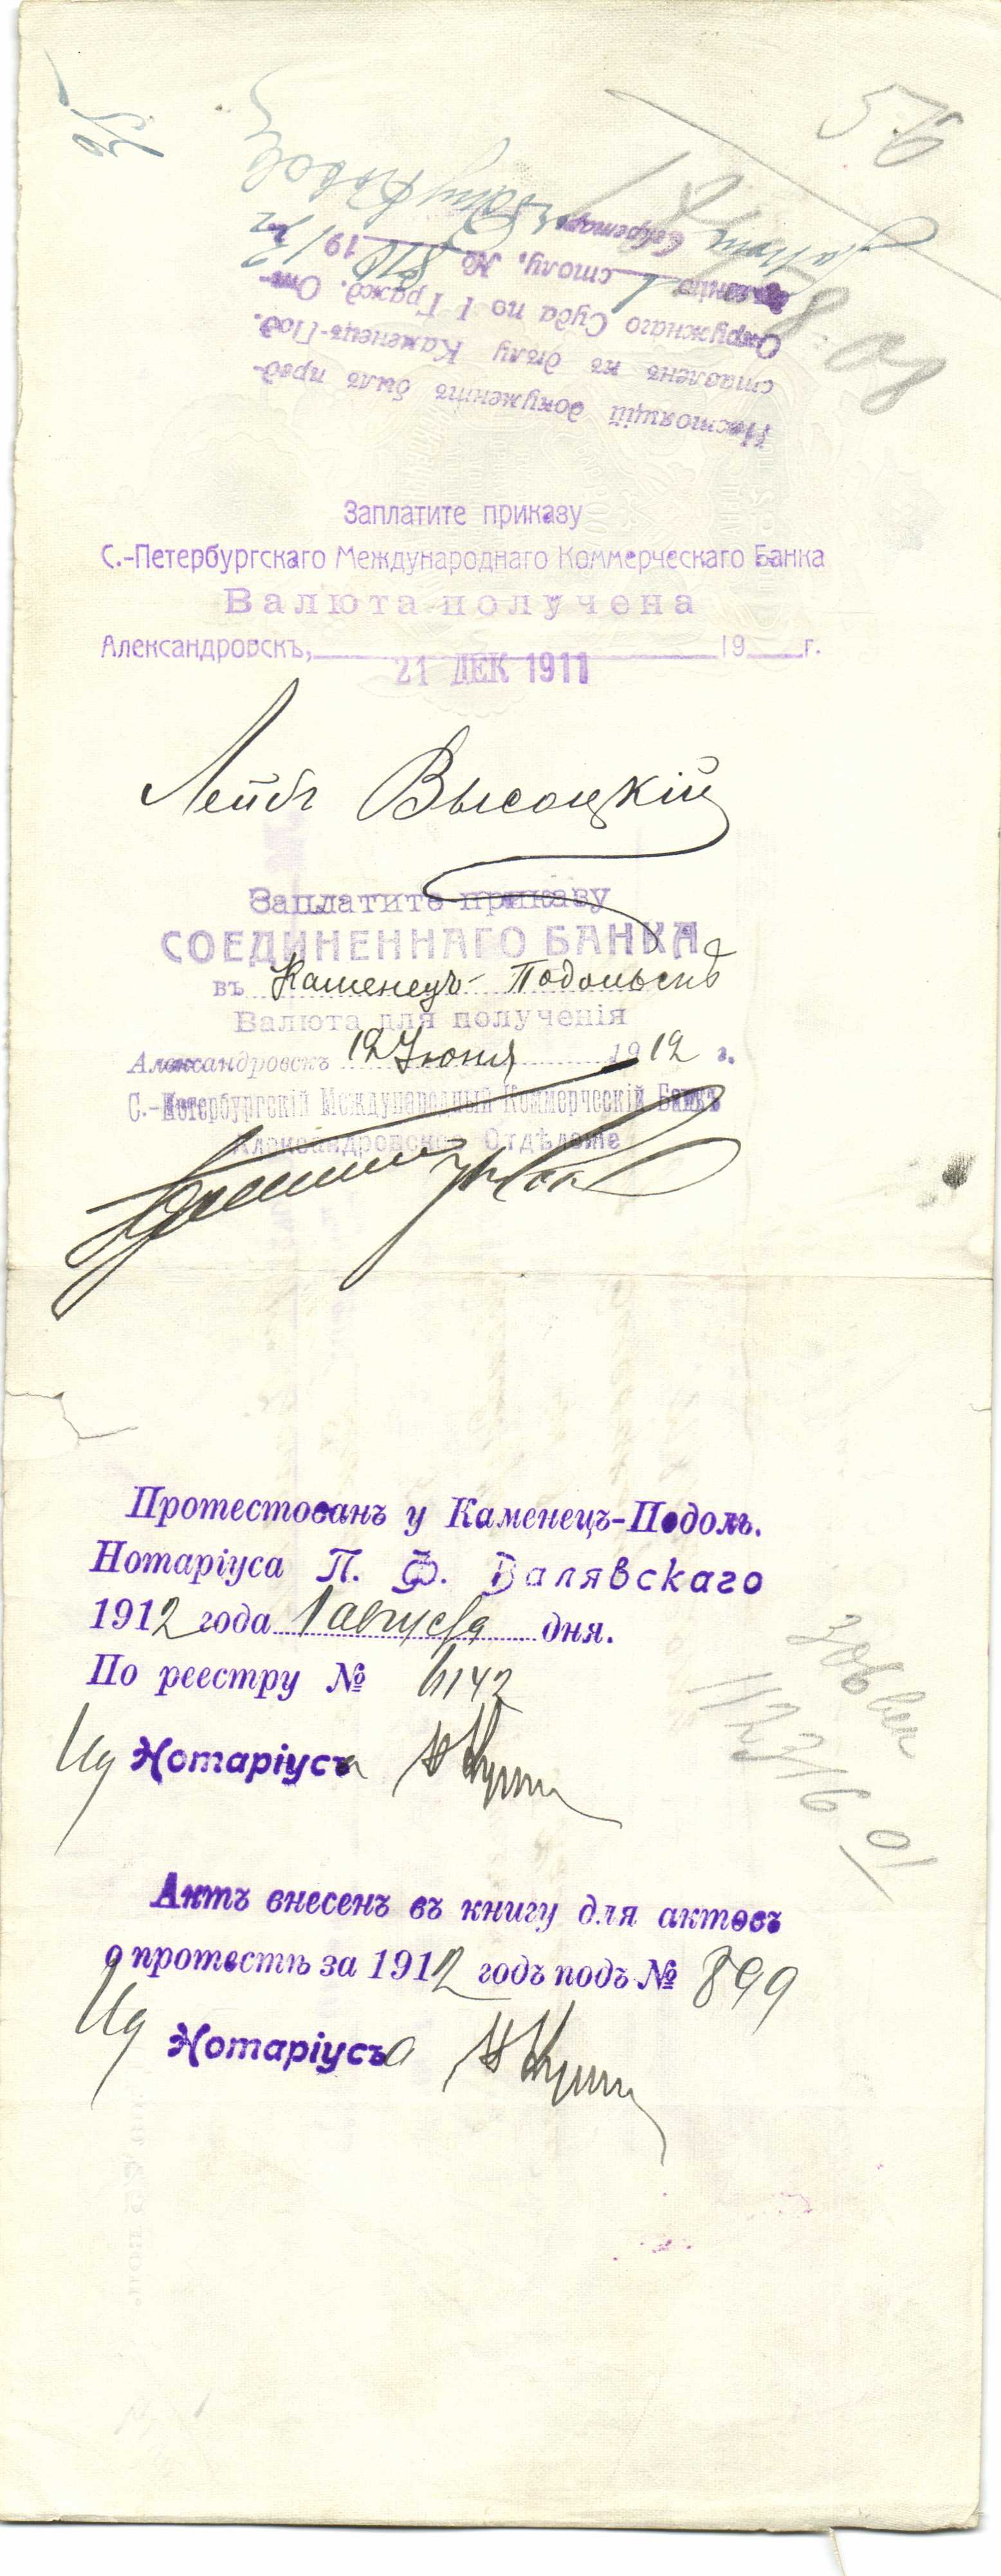 56
Настоящій документъ былъ пред-
ставленъ къ дѣлу Каменецъ-Под.
Окружнаго Суда по 1 Гражд. От-
столу, № 870 19
Секретарь
Заплатите приказу
С.-Петербургскаго Международнаго Коммерческаго Банка
Валюта получена
Александровскъ, 19 г.
21 ДЕК 1911
Лейбъ Высоцкій
Заплатите приказу
СОЕДИНЕННАГО БАНКА
въ Каменецъ-Подольскѣ
Валюта для полученія
Александровскъ 12 Іюня 1912 г.
С.-Петербургскій Международный Коммерческій Банкъ
Александровское Отдѣленіе
Протестованъ у Каменецъ-Подоль.
Нотаріуса П. Ф. Валявскаго
1912 года 1 августа дня.
По реестру № 6142
Ид Нотаріуса
Актъ внесенъ въ книгу для актовъ
о протестѣ за 1912 годъ подъ № 899
Ид Нотаріуса